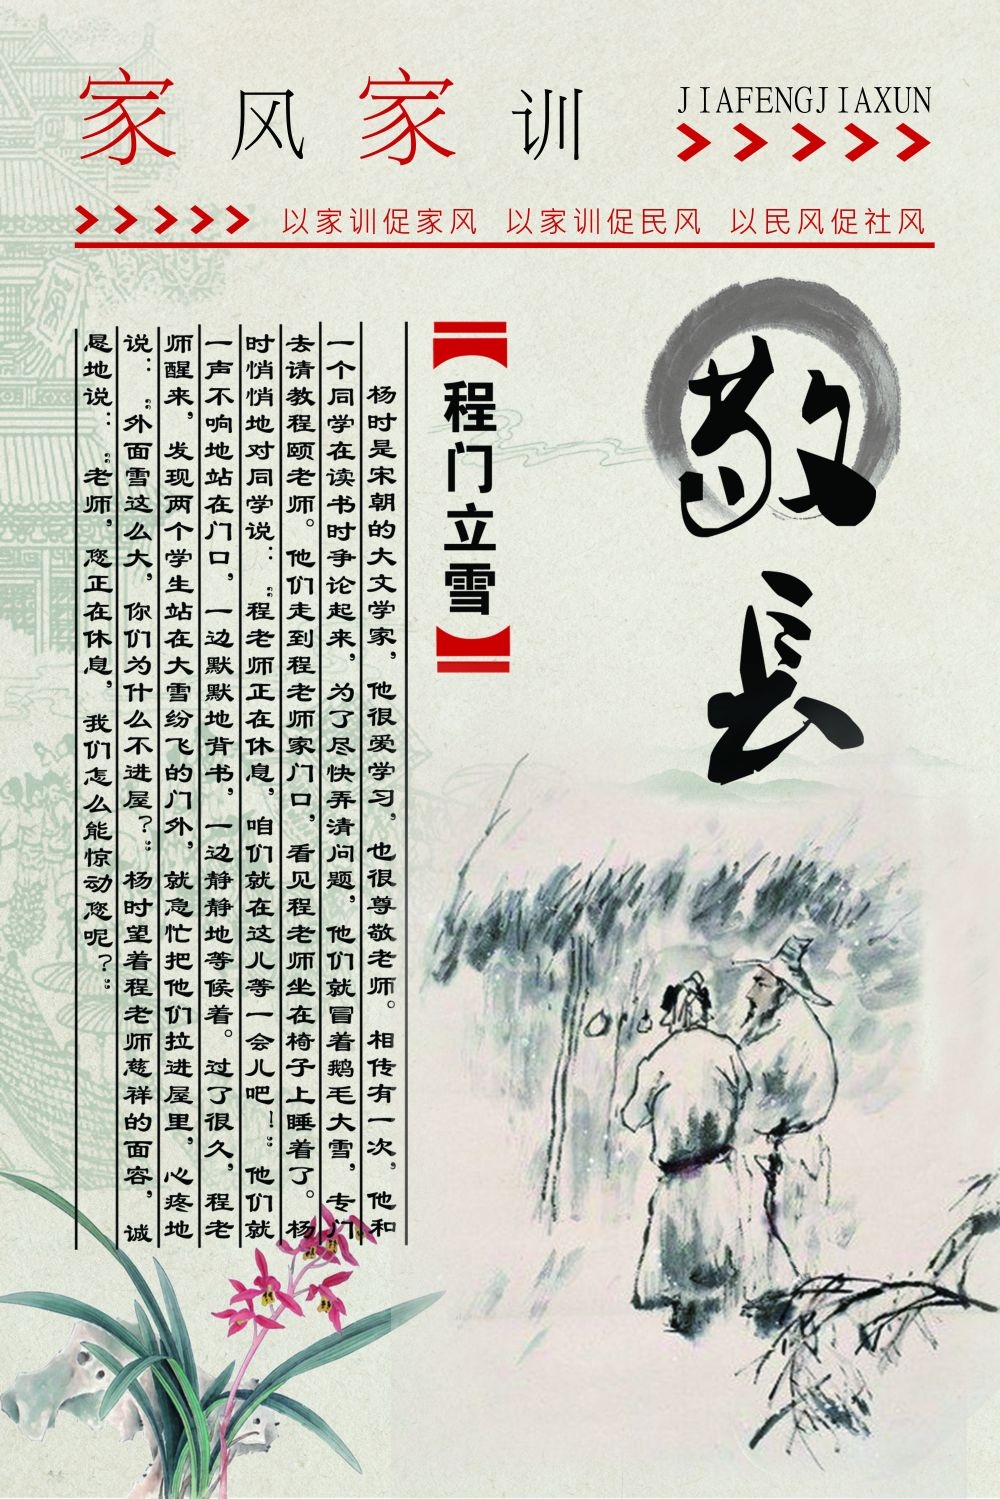 家风家训
JIAFENGJIAXUN
以家训促家风 以家训促民风 以民风促社风
敬长
【程门立雪】
杨时是宋朝的大文学家，他很爱学习，也很尊敬老师。相传有一次，他和
一个同学在读书时争论起来，为了尽快弄清问题，他们就冒着鹅毛大雪，专门
去请教程颐老师。他们走到程老师家门口，看见程老师坐在椅子上睡着了。杨
时悄悄地对同学说：“程老师正在休息，咱们就在这儿等一会儿吧！”他们就
一声不响地站在门口，一边默默地背书，一边静静地等候着。过了很久，程老
师醒来，发现两个学生站在大雪纷飞的门外，就急忙把他们拉进屋里，心疼地
说：“外面雪这么大，你们为什么不进屋？”杨时望着程老师慈祥的面容，诚
恳地说：“老师，您正在休息，我们怎么能惊动您呢？”